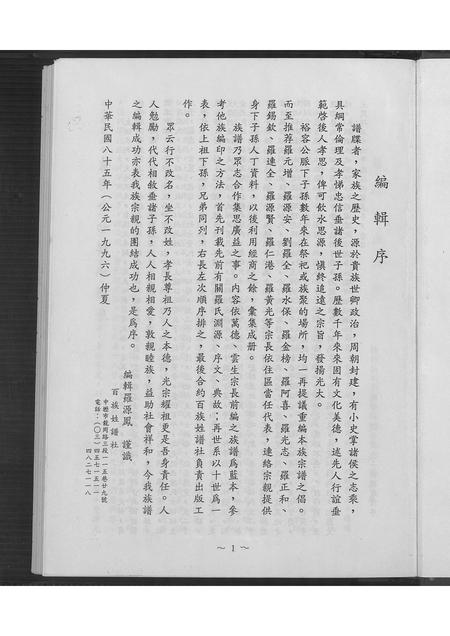 編輯序
譜牒者，家族之歷史，源於貴族世卿政治，周朝封建，有小史掌諸侯之志乘，
具綱常倫理及孝悌忠信垂諸後世子孫。歷數千年來來固有文化美德，述先人行誼垂
範啓後人孝思，俾可飲水思源，慎終追遠之宗旨，發揚光大。
裕容公脈下子孫數年來在祭祀或族聚的場所，均一再提議重編本族宗譜之倡。
而至推荐羅元增、羅源安、劉羅全、羅水保、羅金榜、羅阿喜、羅光志、羅正和、
羅錫欽、羅連全、羅源賢、羅仁港、羅黃光等宗長依住區當任代表，連絡宗親提供
身下子孫人丁資料，以後利用經商之餘，彙集成册。
族譜乃眾志合作集思廣益之事。內容依萬德、雲生宗長前編之族譜爲藍本，參
考他族編印之方法，首先刊載先前有關羅氏淵源、序文、典故；再世系以十世爲一
表，依上祖下孫，兄弟同列，右長左次順序排之，最後合約百族姓譜社負責出版工
作。
眾云行不改名，坐不改姓，孝長尊祖乃人之本德，光宗耀祖更是吾身責任。人
人勉勵，代代相敘垂諸子孫，人人相親相愛，敦親睦族，益助社會祥和，今我族譜
之編輯成功亦表我族宗親的團結成功也，是爲序。
編輯羅源鳳　謹識
百族姓譜社
中壢市龍岡路三段一一五巷廿九號
電話：（〇三）四五七一五一一
四八二七一一八
中華民國八十五年（公元一九九六）仲夏
～1～